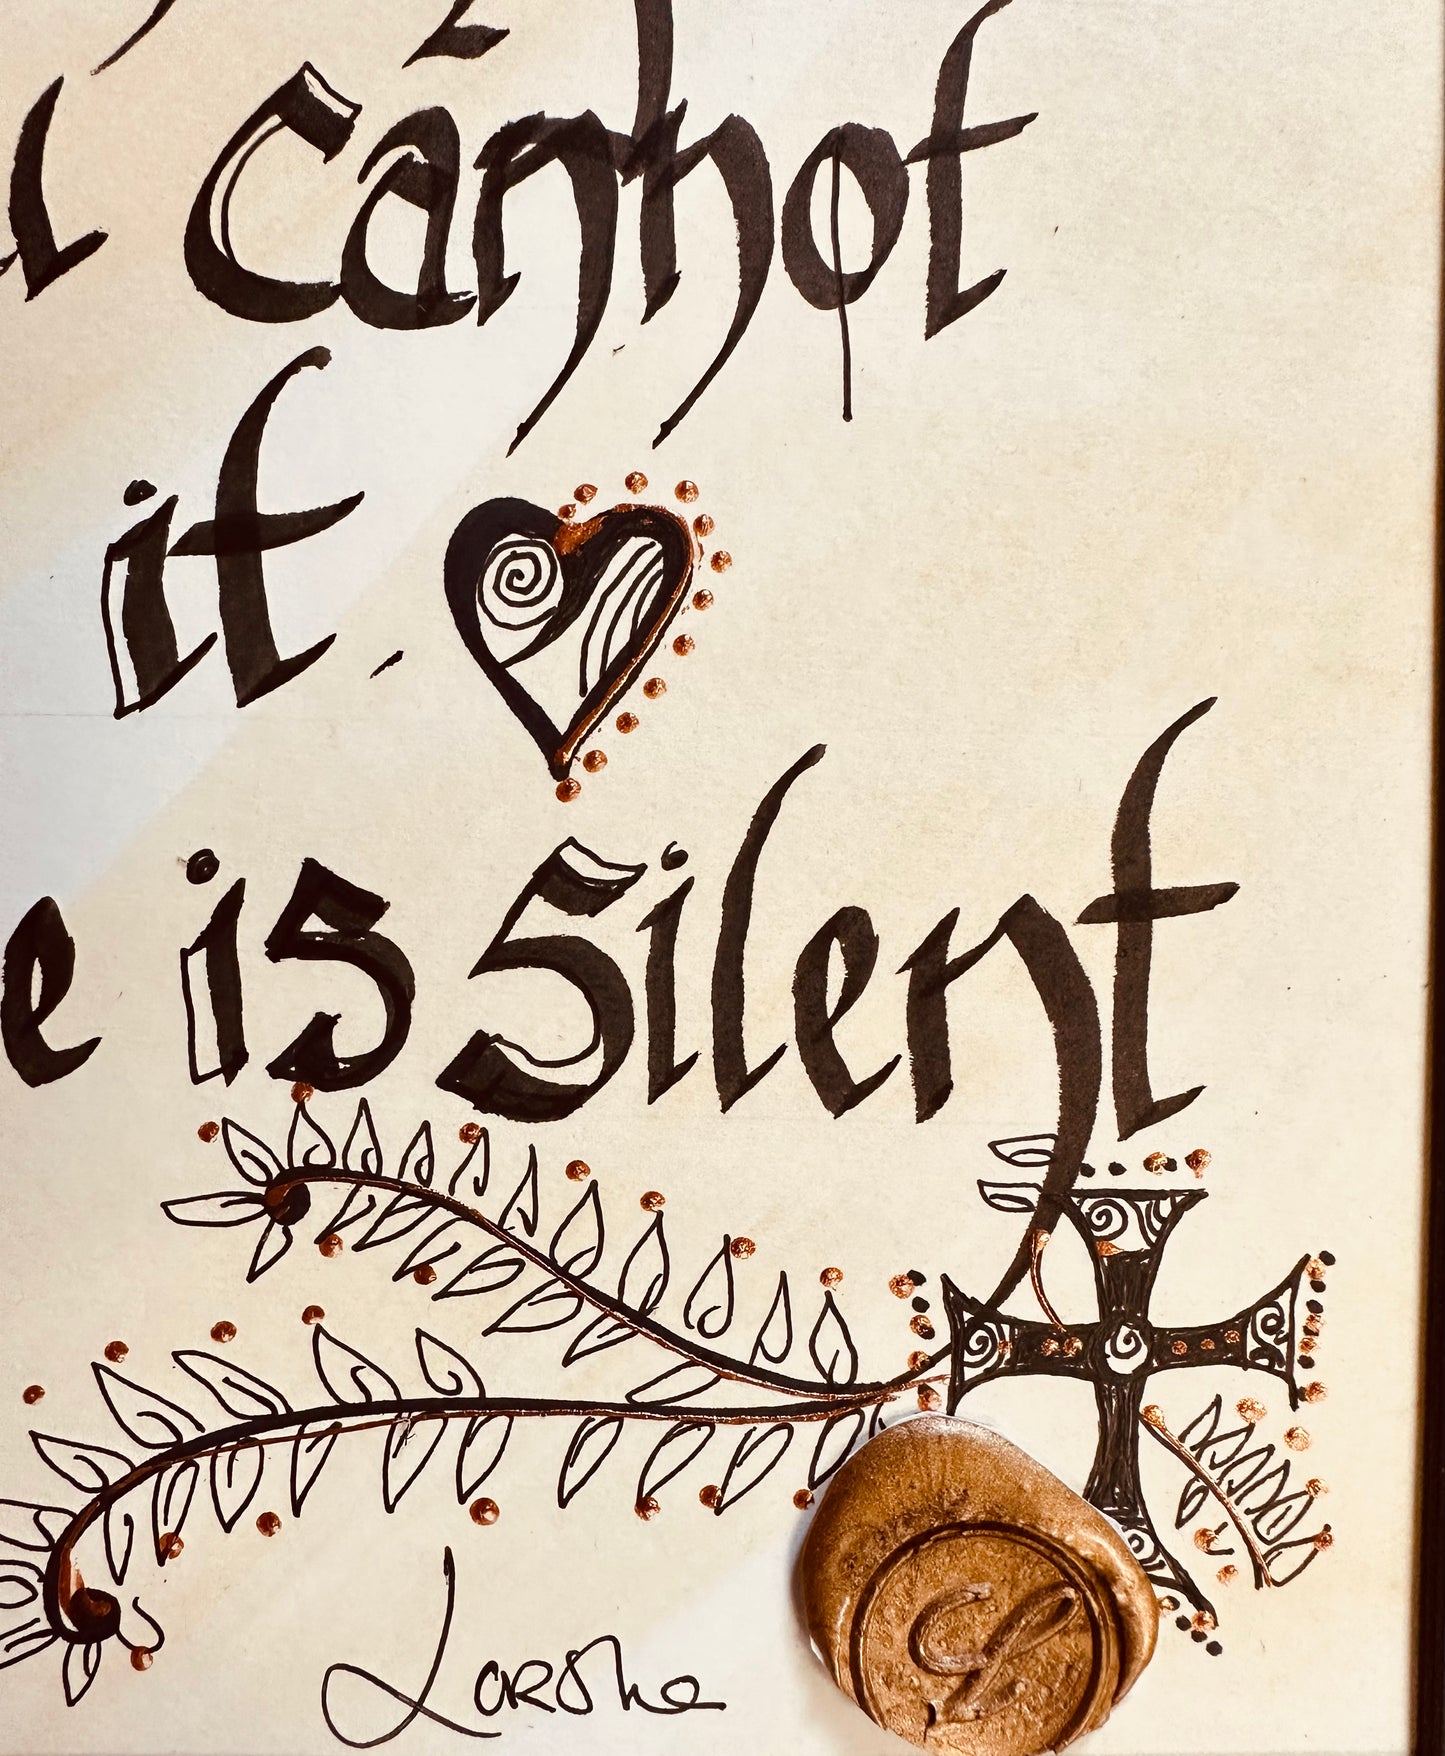 cannot
it
is Silent
Lorshe
L